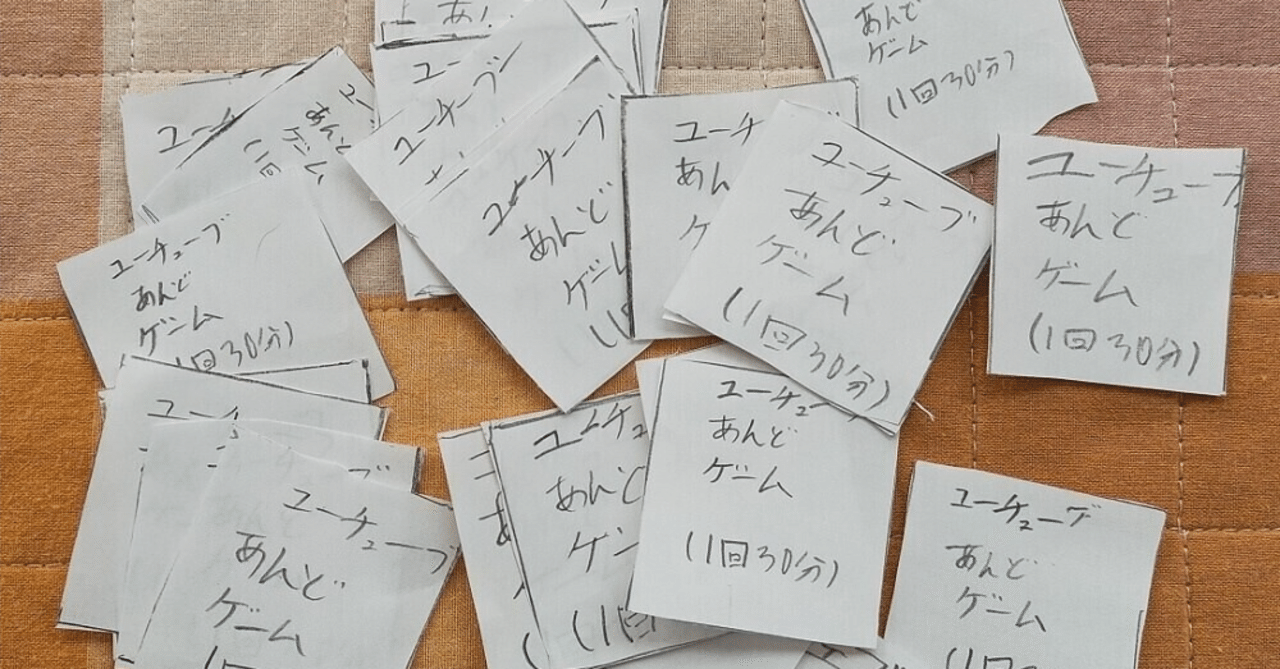 あんど
ゲーム
(1回30分)
ユーチ
あんど
ゲーム
(1回
ユーチューブ
ユーチューブ
あんど
ゲー
(1
ユーチ
あん
ゲ
ユーチューブ
あんど
ゲーム
(1回30分)
ユーチューブ
あんど
ゲーム
(1回30分)
ユーチューブ
あんど
ゲーム
1回30分)
ユーチ
ユーチューブ
あんど
ゲーム
ユーチュ
あんど
ゲー
(1回
ユーチュー
あんど
ゲーム
(1回30分)
ユーチューブ
あんど
ゲーム
(1回30分)